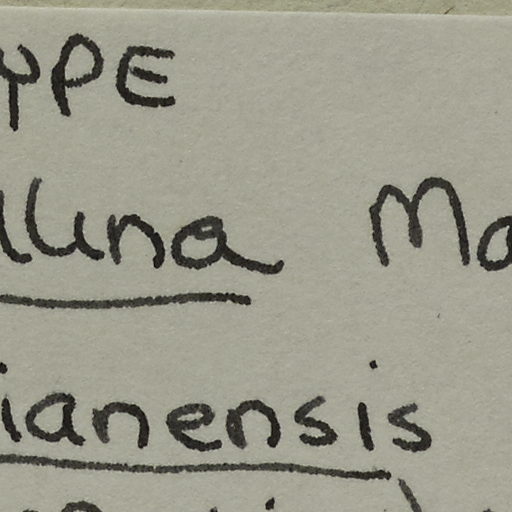 YPE
lluna Ma
ianensis